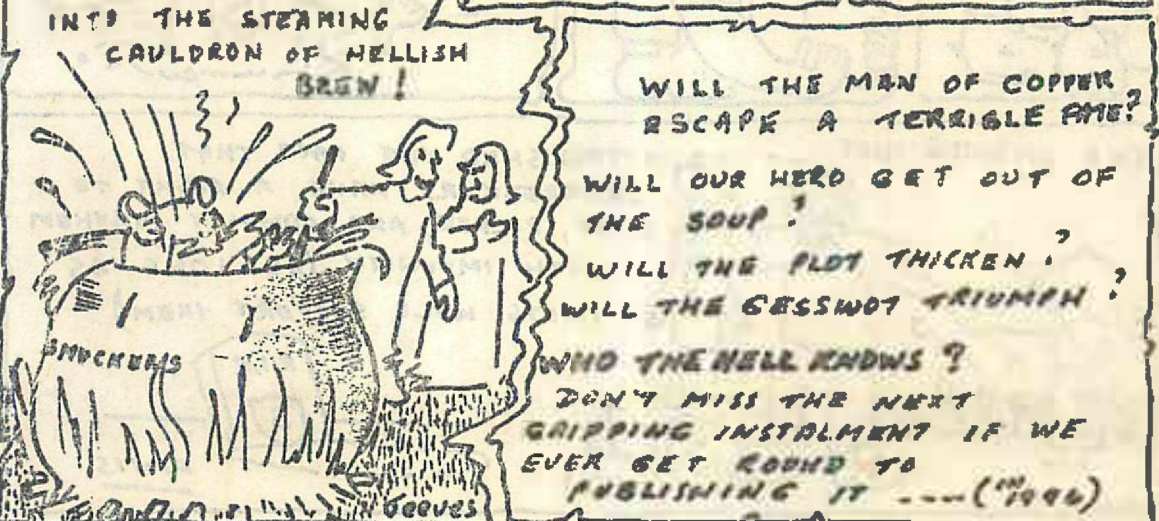 INTO THE STEAMING
CAULDRON OF HELLISH
BREW!
SMUCKERS
Geeves
WILL THE MAN OF COPPER
ESCAPE A TERRIBLE FATE?
WILL OUR HERO GET OUT OF
THE SOUP?
WILL THE PLOT THICKEN?
WILL THE GESSWOT TRIUMPH?
WHO THE HELL KNOWS?
DON'T MISS THE NEXT
GRIPPING INSTALMENT IF WE
EVER GET ROUND TO
PUBLISHING IT ---- (IN 1996)